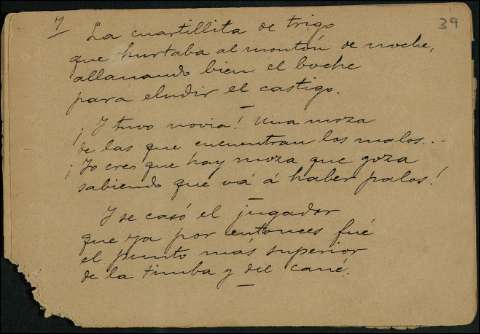 7
39
La cuartillita de trigo
que hurtaba al montón de noche,
allanando bien el boche
para eludir el castigo.
¡Y tuvo novia! Una moza
de las que encuentran los malos...
¡Yo creo que hay moza que goza
sabiendo que vá á haber palos!
Y se casó el jugador
que ya por entonces fué
el punto más superior
de la timba y del cané.